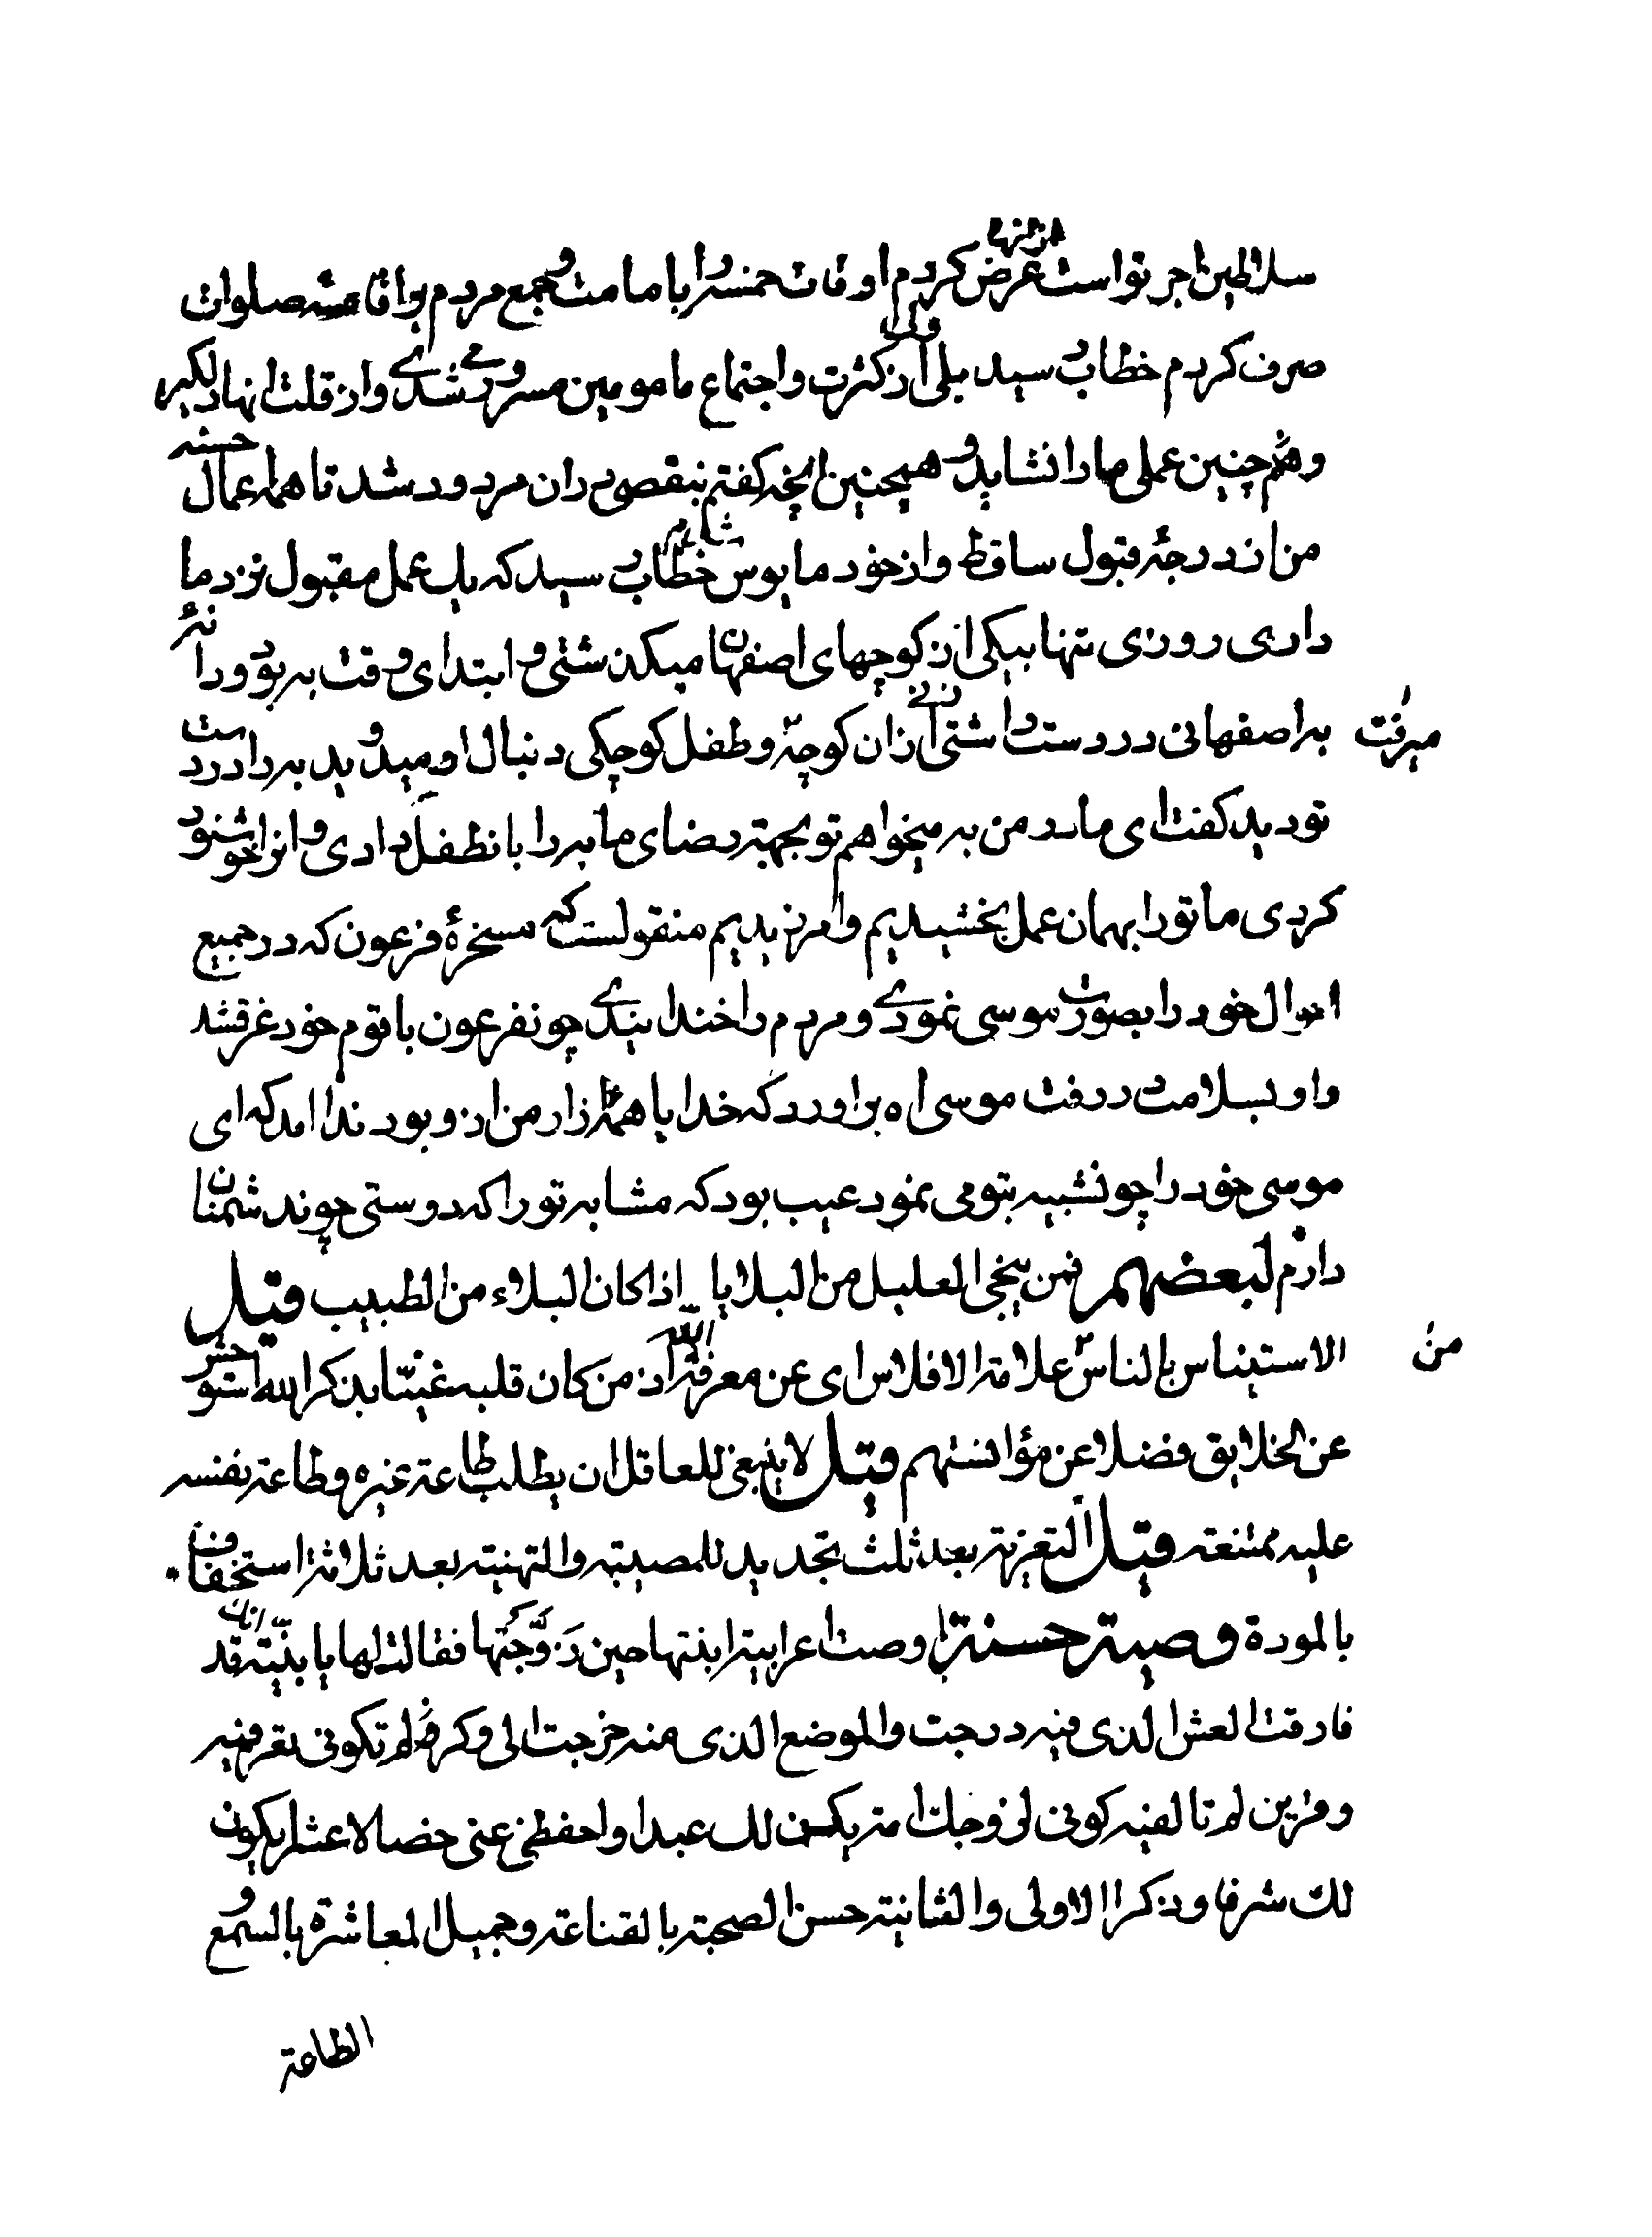 سلاطین اجر تو است عرض کردم اوقات خمسه را بامامت و جمع مردم بواقامته صلوات
صرف کردم خطاب رسید بلی ولی از کثرت و اجتماع مامومین مسرور می شدی و از قلت انها دلگیر
و هم چنین عملی ما را نشاید و همچنین انچه گفتم بنقصی دران مردود شد تا همه اعمال حسنه
من از درجه قبول ساقط و از خود مایوس شدم خطاب رسید که یک عمل مقبول نزد ما
داری روزی تنها بیکی از کوچهای اصفهان میگذشتی و ابتدای وقت به بود و دانه
به اصفهانی در دست داشتی زنی ازان کوچه میرفت و طفل کوچکی دنبال او میدوید به را در دست
تو دید گفت ای مادر من به میخواهم تو بجهة رضای ما به را بانطفل دادی و انرا خوشنود
کردی ما تو را بهمان عمل بخشیدیم و امرزیدیم منقولست که مسخرهٔ فرعون که در جمیع
احوال خود را بصورت موسی نمودی و مردم را خندانیدی چونفرعون با قوم خود غرقشد
و او بسلامت در رفت موسی اه براورد که خدایا همه ازار من از و بود ندا امد که ای
موسی خود را چو نشبیه بتو می نمود عیب بود که مشابه تو را که دوستی چو ندشمنان
دارم لبعضهم فمن ینجی العلیل من البلایا اذا کان البلاء من الطبیب قیل
الاستیناس بالناس من علامة الافلاس ای عن معرفة الله اذ من کان قلبه غنیّا بذکر الله استوحش
عن الخلایق فضلا عن مؤانستهم قیل لا ینبغی للعاقل ان یطلب طاعة غیره و طاعة نفسه
علیه ممتنعه قیل التعزیة بعد ثلث تجدید للمصیبته و التهنیته بعد ثلاثة استخفاف
بالمودة وصیة حسنة اوصت اعرابیة ابنتها حین زَوَّجَتها فقالت لها یا بنیّة انک قد
فارقت العش الذی فیه درجت و الموضع الذی منه خرجت الی وکر لم تکونی تعرفیه
و قرین لم تالفیه کونی لزوجک امة یکن لک عبدا و احفظی عنی خصالا عشرا یکون
لک شرفا و ذکرا الاولی و الثانیة حسن الصحبة بالقناعة و جمیل المعاشرة بالسمع و
الطاعة